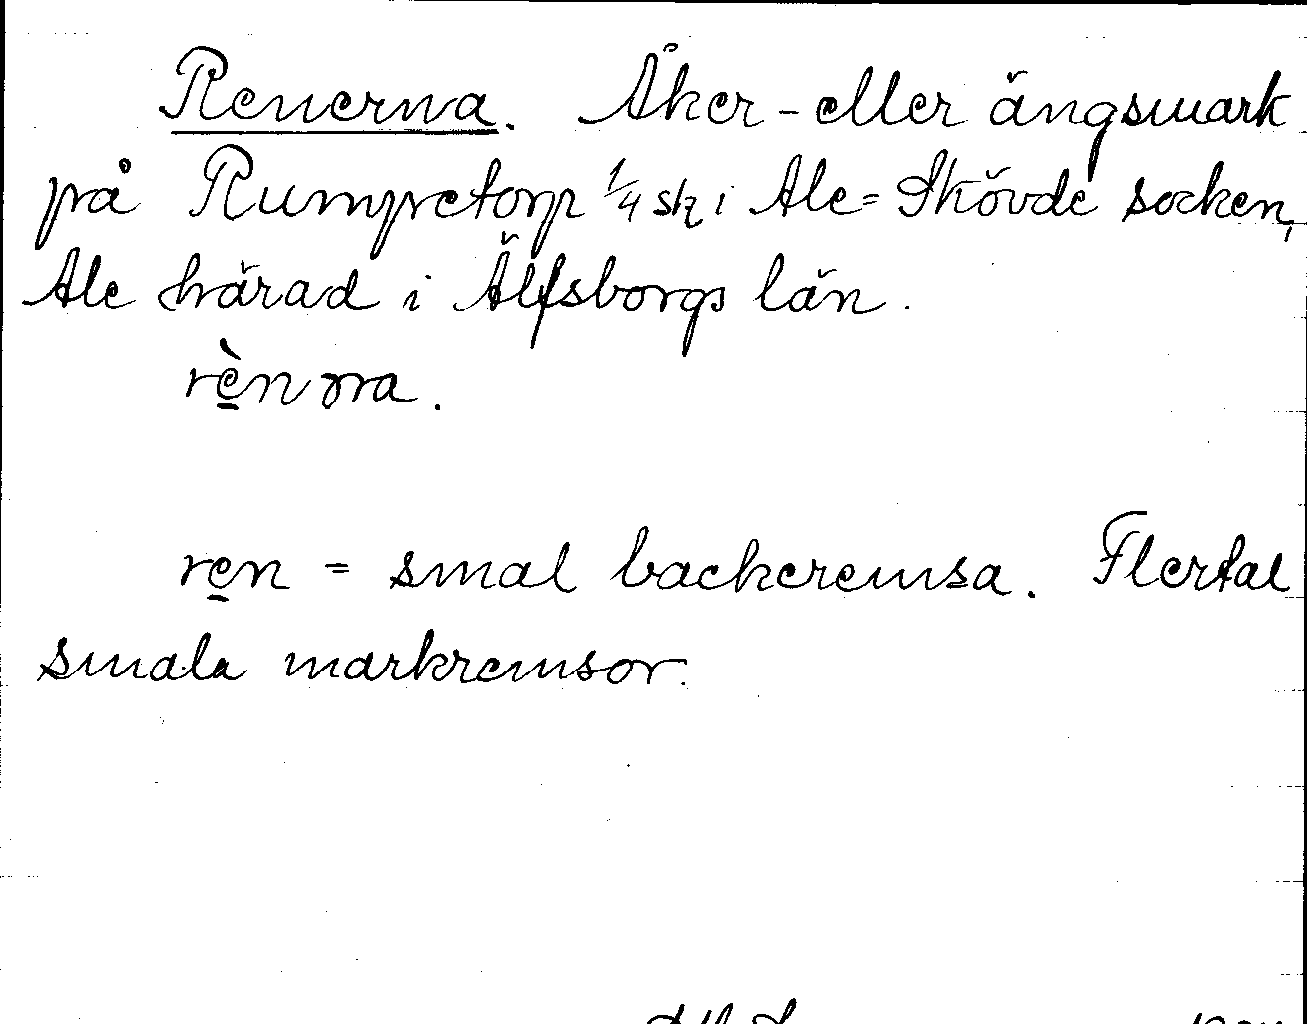 Renerna. Åker- eller ängsmark
på Rumpetorp 1/4 sk i Ale=Skövde socken,
Ale härad i Älfsborgs län.
ren = smal backeremsa. Flertal
smala markremsor.